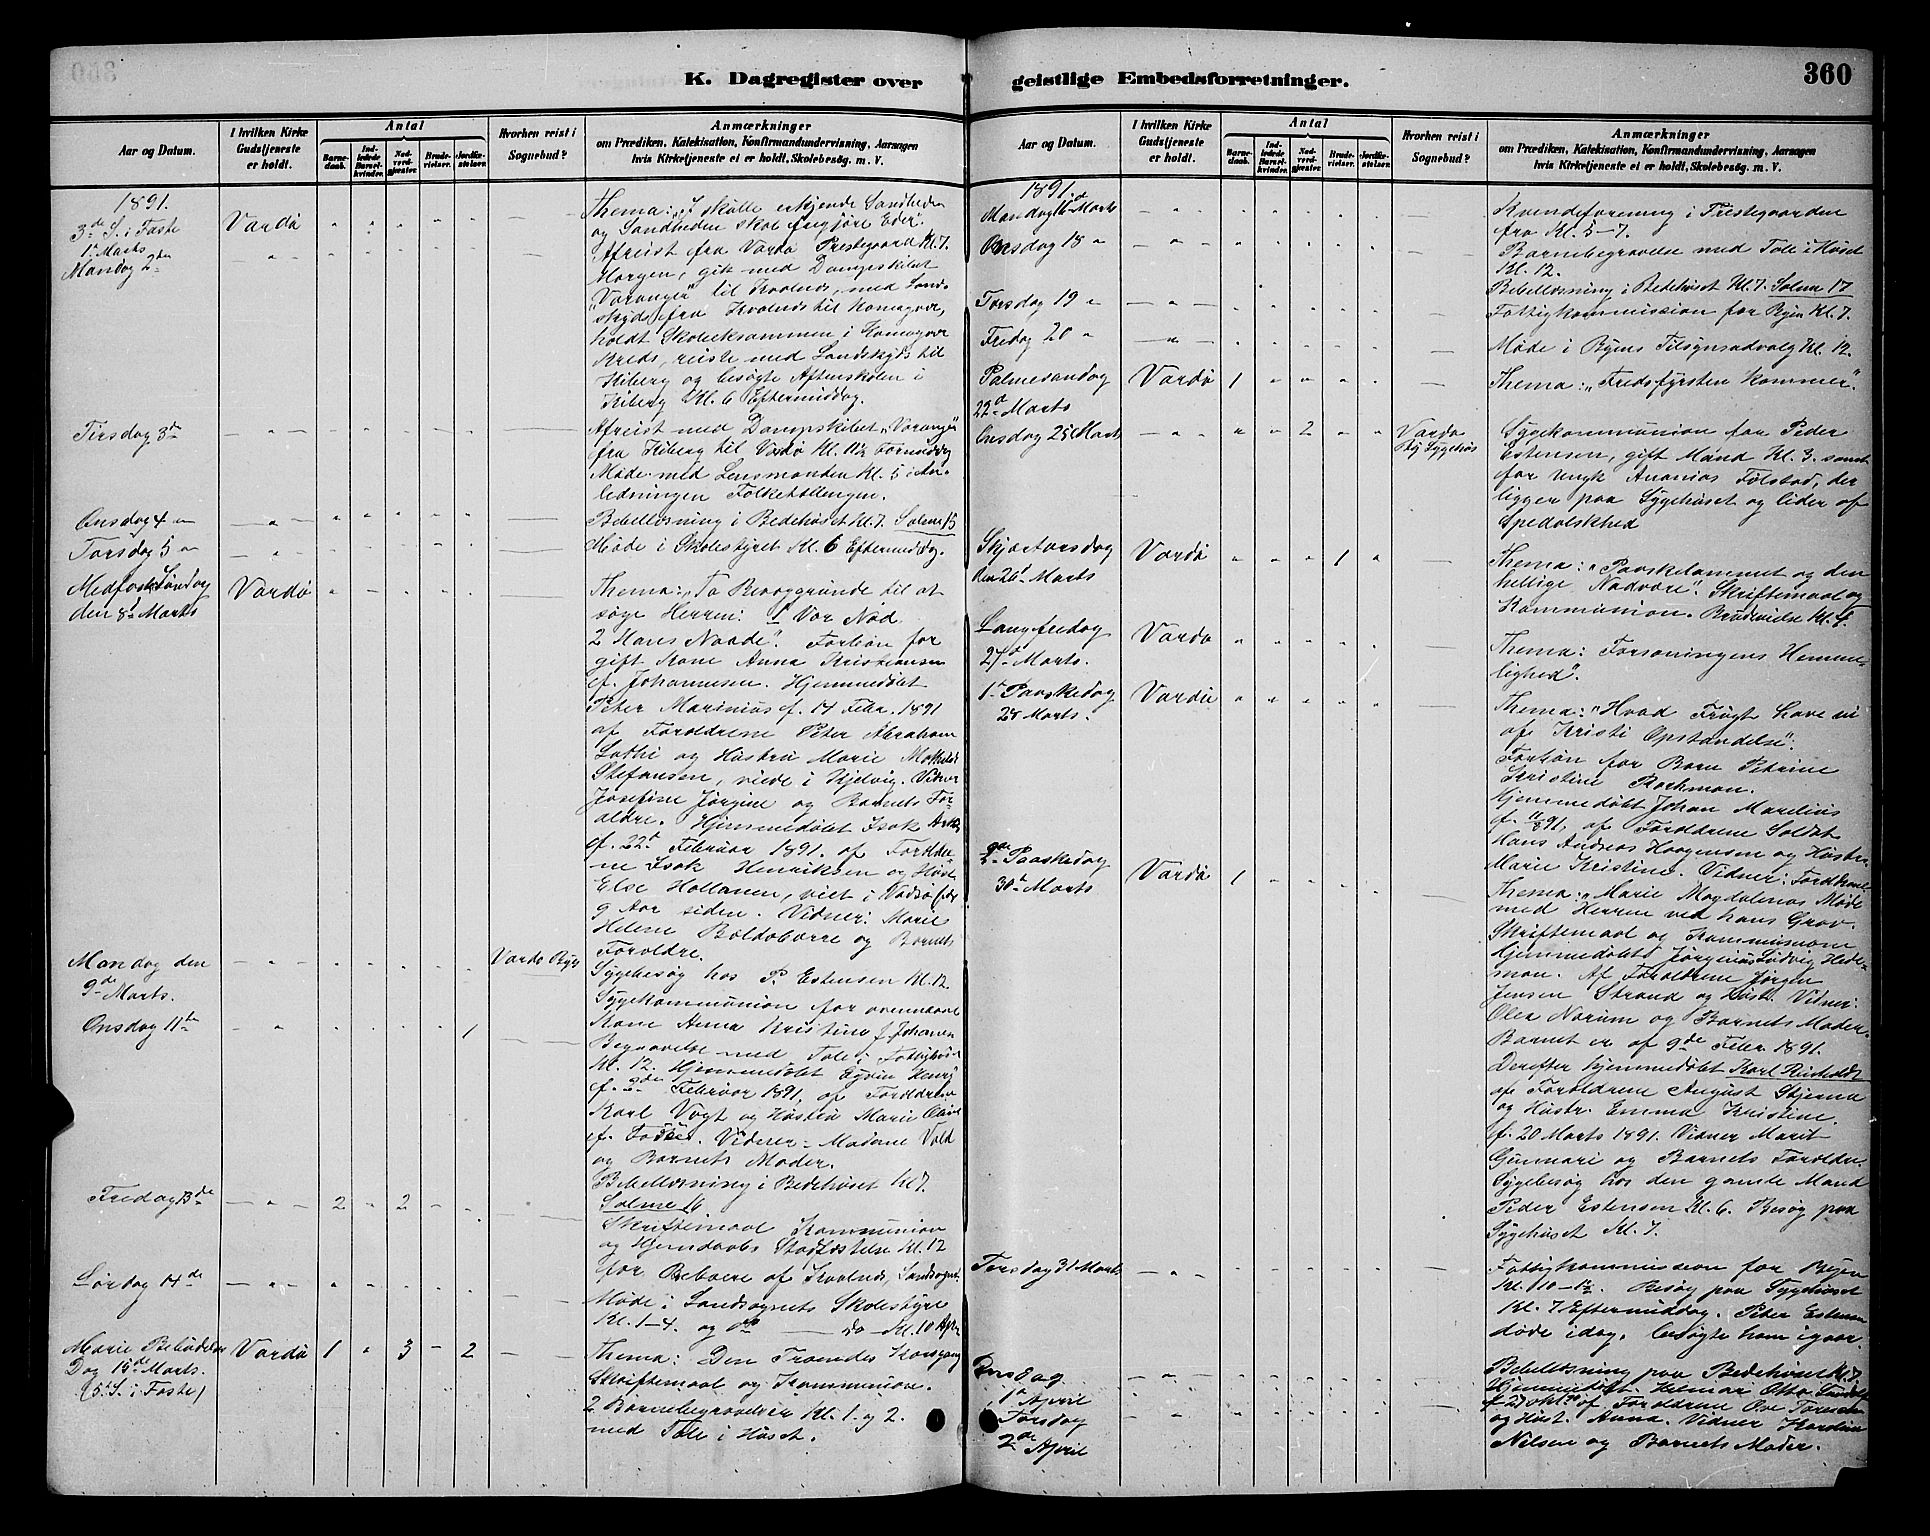 K. Dagregister over
Aar og Datum.
I hvilken Kirke
Gudstjeneste
er holdt.
Antal
Barne-
daab.
Ind-
ledede
Barsel-
kvinder.
Nad-
verd-
gjester.
Brude-
vielser.
Jordfæ-
stelser.
Hvorhen reist i
Sognebud?
Anmærkninger
om Prædiken, Katekisation, Konfirmandundervisning, Aarsagen
hvis Kirketjeneste ei er holdt, Skolebesøg. m. V.
1891.
3de S. i Faste
1te Marts
Vardø
Thema: „I skulle erkjende Sandheden
og Sandheden skal frigjøre Eder".
Mandag 2den
Afreist fra Vardø Prestegaard Kl. 7
Morgen, gik med Dampskibet
„Varanger" til Kvalnes, med Land-
skyds fra Kvalnes til Komagvær,
holdt Skoleeksammen i Komagvær
Kreds, reiste med Landskyds til
Kiberg og besøgte Aftenskolen i
Kiberg Kl. 6 Eftermiddag.
Tirsdag 3de
Afreist med Dampskibet „Varanger"
fra Kiberg til Vardø Kl. 11½ Formiddag
Møde med Lensmanden Kl. 5 i An-
ledningen Folketællingen.
Onsdag 4 "
Bibellæsning i Bedehuset Kl. 7. Salme 15
Torsdag 5 "
Møde i Skolestyret Kl. 6 Eftermiddag.
Midfaste Søndag
den 8de Marts
Vardø
Thema: „To Bevæggrunde til at
søge Herren: 1 Vor Nød
2 Hans Naade". Forbøn for
gift Kone Anna Kristiansen
f. Johannesen. Hjemmedøbt
Peter Marinius f. 14 Febr. 1891
af Forældrene Peter Abraham
og Hustru Marie
Stefansen, viede i Vidner
Josefine Jørgine og Barnets For-
ældre. Hjemmedøbt Isak
f. 22de Februar 1891. af Forældre-
ne Isak Henriksen og Hust.
Else Hollanen, viet i Vadsø for
9 Aar siden. Vidner: Marie
Helene og Barnets
Forældre.
Mandag den
9de Marts.
Vardø By
Sygebesøg hos P. Estensen Kl. 12
Sygekommunion for ovennævnte
Kone Anna Kristine
Onsdag 11te
1
Begravelse med Tale i Fattighuset
Kl. 12. Hjemmedøbt Eyvin Henry
f. Februar 1891, af Forældrene
Karl Vogt og Hustru Marie
f. Vidner: Madame Vold
og Barnets Moder.
Bibellæsning i Bedehuset Kl. 7.
Salme 16
Fredag 13de
2 2
Skriftemaal Kommunion
og Hjemdaabs Stadfæstelse Kl. 12
for Beboere af Kvalnes, Landsognet
Lørdag 14de
Møde i Landsognets Skolestyre
Kl. 1–4. og do — do – Kl. 10
Marie Bebudelses
Dag 15de Marts.
(5te S. i Faste)
Vardø
1 3 2
Thema: Den Troendes Korsgang
Skriftemaal og Kommunion.
2 Barnebegravelser Kl. 1. og 2.
med Tale i Huset.
geistlige Embedsforretninger.
360
Aar og Datum.
I hvilken Kirke
Gudstjeneste
er holdt.
Antal
Barne-
daab.
Ind-
ledede
Barsel-
kvinder.
Nad-
verd-
gjester.
Brude-
vielser.
Jordfæ-
stelser.
Hvorhen reist i
Sognebud?
Anmærkninger
om Prædiken, Katekisation, Konfirmandundervisning, Aarsagen
hvis Kirketjeneste ei er holdt, Skolebesøg. m. V.
1891.
Mandag 16de Marts
Kvindeforening i Prestegaarden
fra Kl. 5–7.
Onsdag 18 "
Barnebegravelse med Tale i Huset
Kl. 12.
Bibellæsning i Bedehuset Kl. 7. Salme 17
Torsdag 19 "
Fattigkommission for Byen Kl. 7.
Fredag 20 "
Møde i Byens Tilsynsudvalg Kl. 12.
Palmesøndag
22de Marts
Vardø
1
Thema: „Fredsfyrsten kommer".
Onsdag 25de Marts
2
Vardø
By Sygehus
Sygekommunion for Peder
Estensen, gift Mand Kl. 3. samt
for Ungk. Ananias Følstad, der
ligger paa Sygehuset og lider af
Spedalskhed
Skjærtorsdag
den 26de Marts
Vardø
1
Thema: „Paaskelammet og den
hellige Nadvere". Skriftemaal og
Kommunion. Brudevielse Kl. 4.
Langfredag
27de Marts.
Vardø
Thema: Forsoningens Hemme-
lighed".
1te Paaskedag
29 Marts.
Vardø
Thema: „Hvad Frugt have vi
af Kristi Opstandelse".
Forbøn for Barn Petrine
Kristine
Hjemmedøbt Johan Marelius
f. 91, af Forældrene Soldat
Hans Andreas Haagensen og Hustru
Marie Kristine. Vidner: Forældrene
2den Paaskedag
30te Marts
Vardø
1
Thema: „Marie Magdalenas Møde
med Herren ved hans Grav.
Skriftemaal og Kommunion
Hjemmedøbt Jørginius Ludvig
Af Forældrene Jørgen
Jensen Strand og Hust. Vidner:
Olea Norum og Barnets Moder.
Barnet er af 9de Febr. 1891.
Derefter hjemmedøbt Karl Reinholdt
af Forældrene August Stjerna
og Hustr. Emma Kristine.
f. 20 Marts 1891. Vidner Marit
Gunnari og Barnets Forældre.
Sygebesøg hos den gamle Mand
Peder Estensen Kl. 6. Besøg paa
Sygehuset Kl. 7.
Tirsdag 31 Marts
Fattigkommission for Byen
Kl. 10–12. Besøg paa Sygehuset
Kl. 7 Eftermiddag. Peter Estensen
døde idag, besøgte ham igaar.
Onsdag
1te April
Bibellæsning paa Bedehuset Kl. 7
Hjemmedøbt Helmar Otto
f. 27 af Forældrene Ove
og Hust. Anna. Vidner
Nilsen og Barnets Moder.
Torsdag
2den April